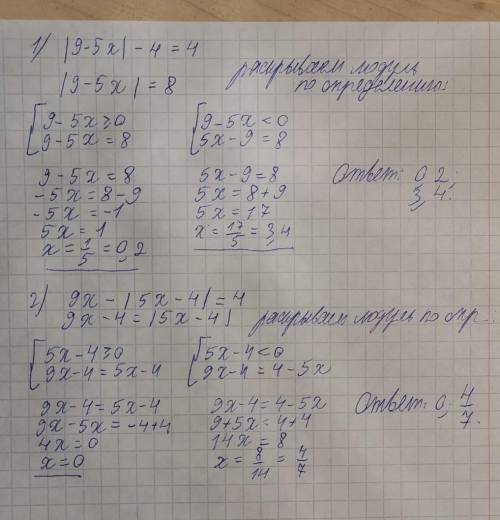 1) |9-5x|-4=4
|9-5x|=8
раскрываем модуль
по определению:
{ 9-5x≥0
9-5x=8
{ 9-5x<0
5x-9=8
9-5x=8
-5x=8-9
-5x=-1
5x=1
x=1/5=0,2
5x-9=8
5x=8+9
5x=17
x=17/5=3,4
Ответ: 0,2;
3,4.
2) 9x-|5x-4|=4
9x-4=|5x-4|
раскрываем модуль по опр.
{ 5x-4≥0
9x-4=5x-4
{ 5x-4<0
9x-4=4-5x
9x-4=5x-4
9x-5x=-4+4
4x=0
x=0
9x-4=4-5x
9+5x=4+4
14x=8
x=8/14=4/7
Ответ: 0, 4/7.